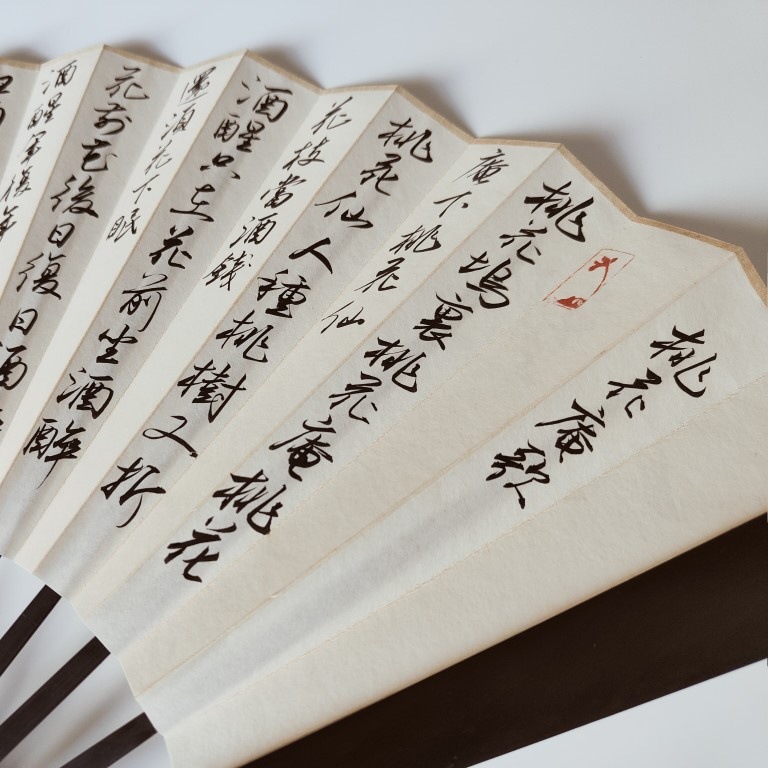 桃花庵歌
桃花塢裏桃花庵桃花
庵下桃花仙
桃花仙人種桃樹又折
花枝當酒錢
酒醒只在花前坐酒醉
還須花下眠
花前花後日復日酒
酒醒年復年